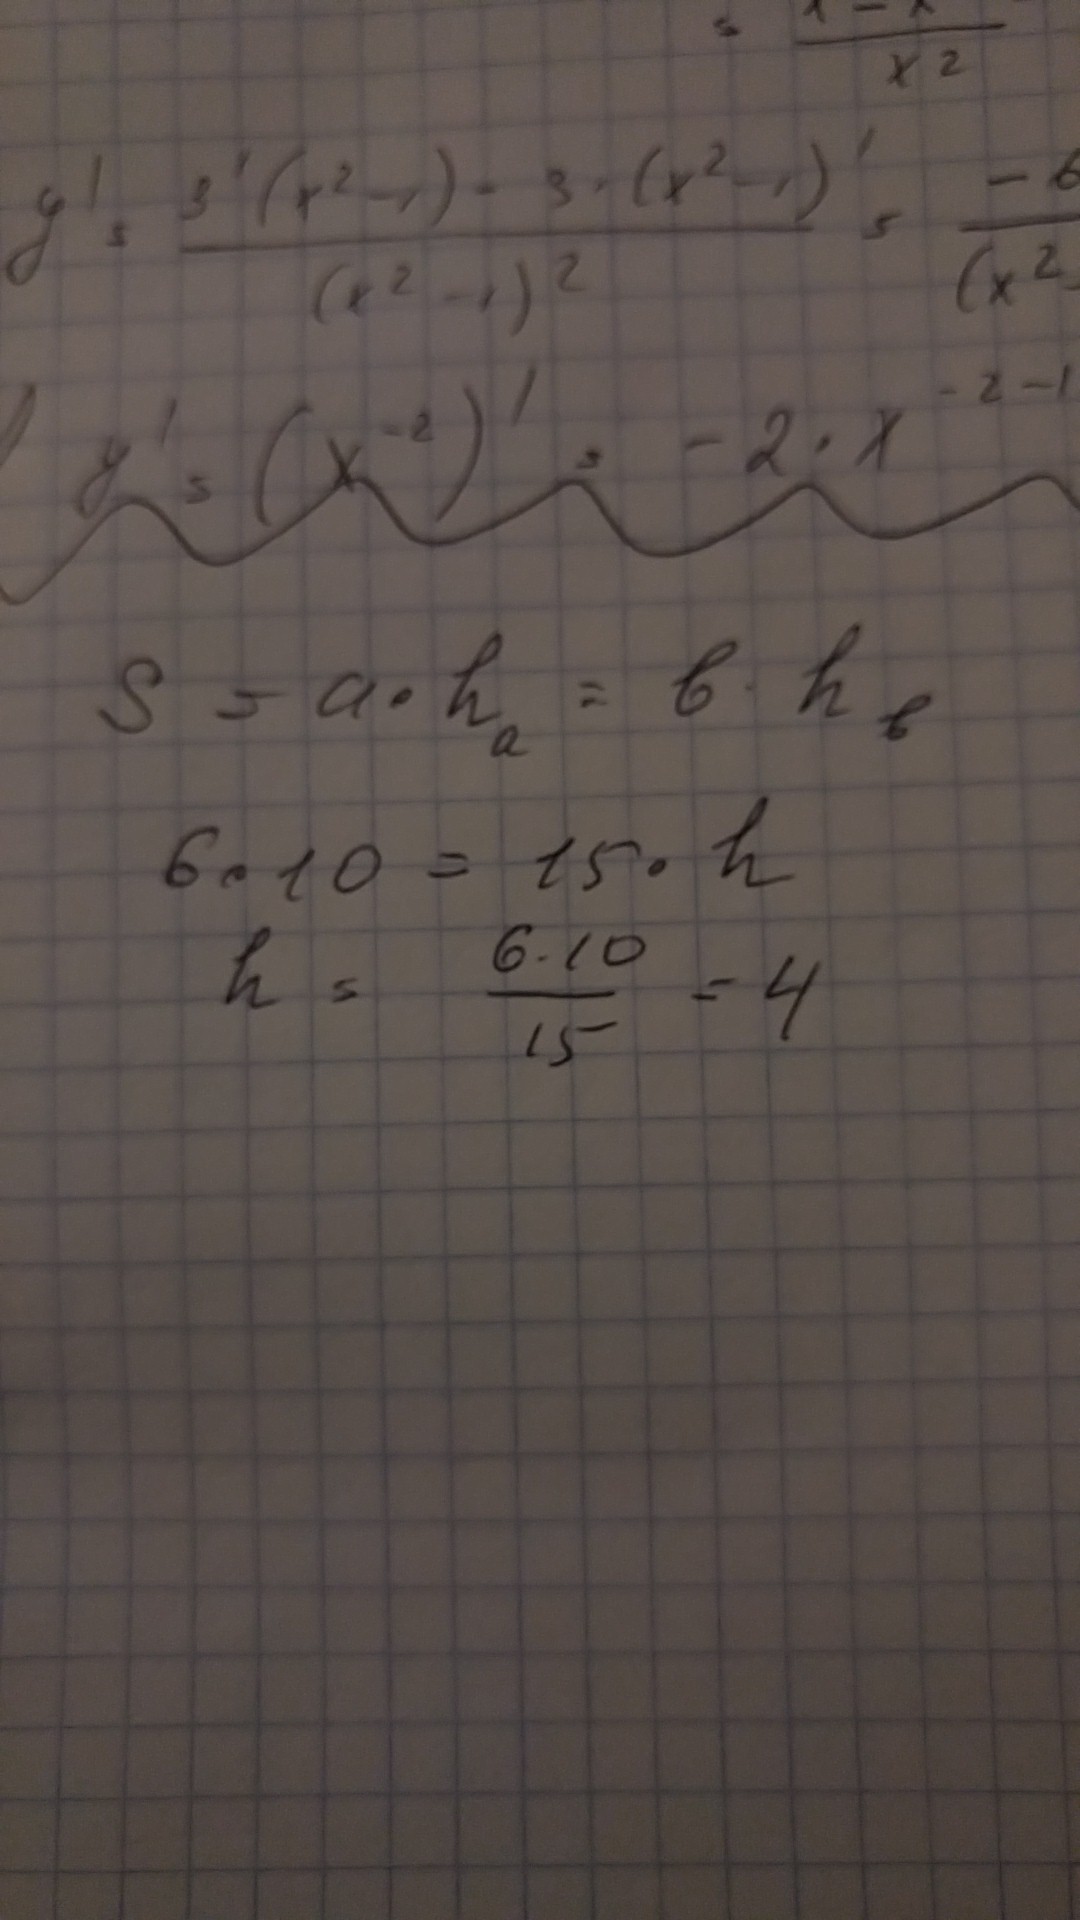 = x²
y' = 3'(x²-1) - 3·(x²-1)' / (x²-1)² = -6 / (x²-
y' = (x⁻²)' = -2·x⁻²⁻¹
S = a·hₐ = b·h_b
6·10 = 15·h
h = 6·10 / 15 = 4